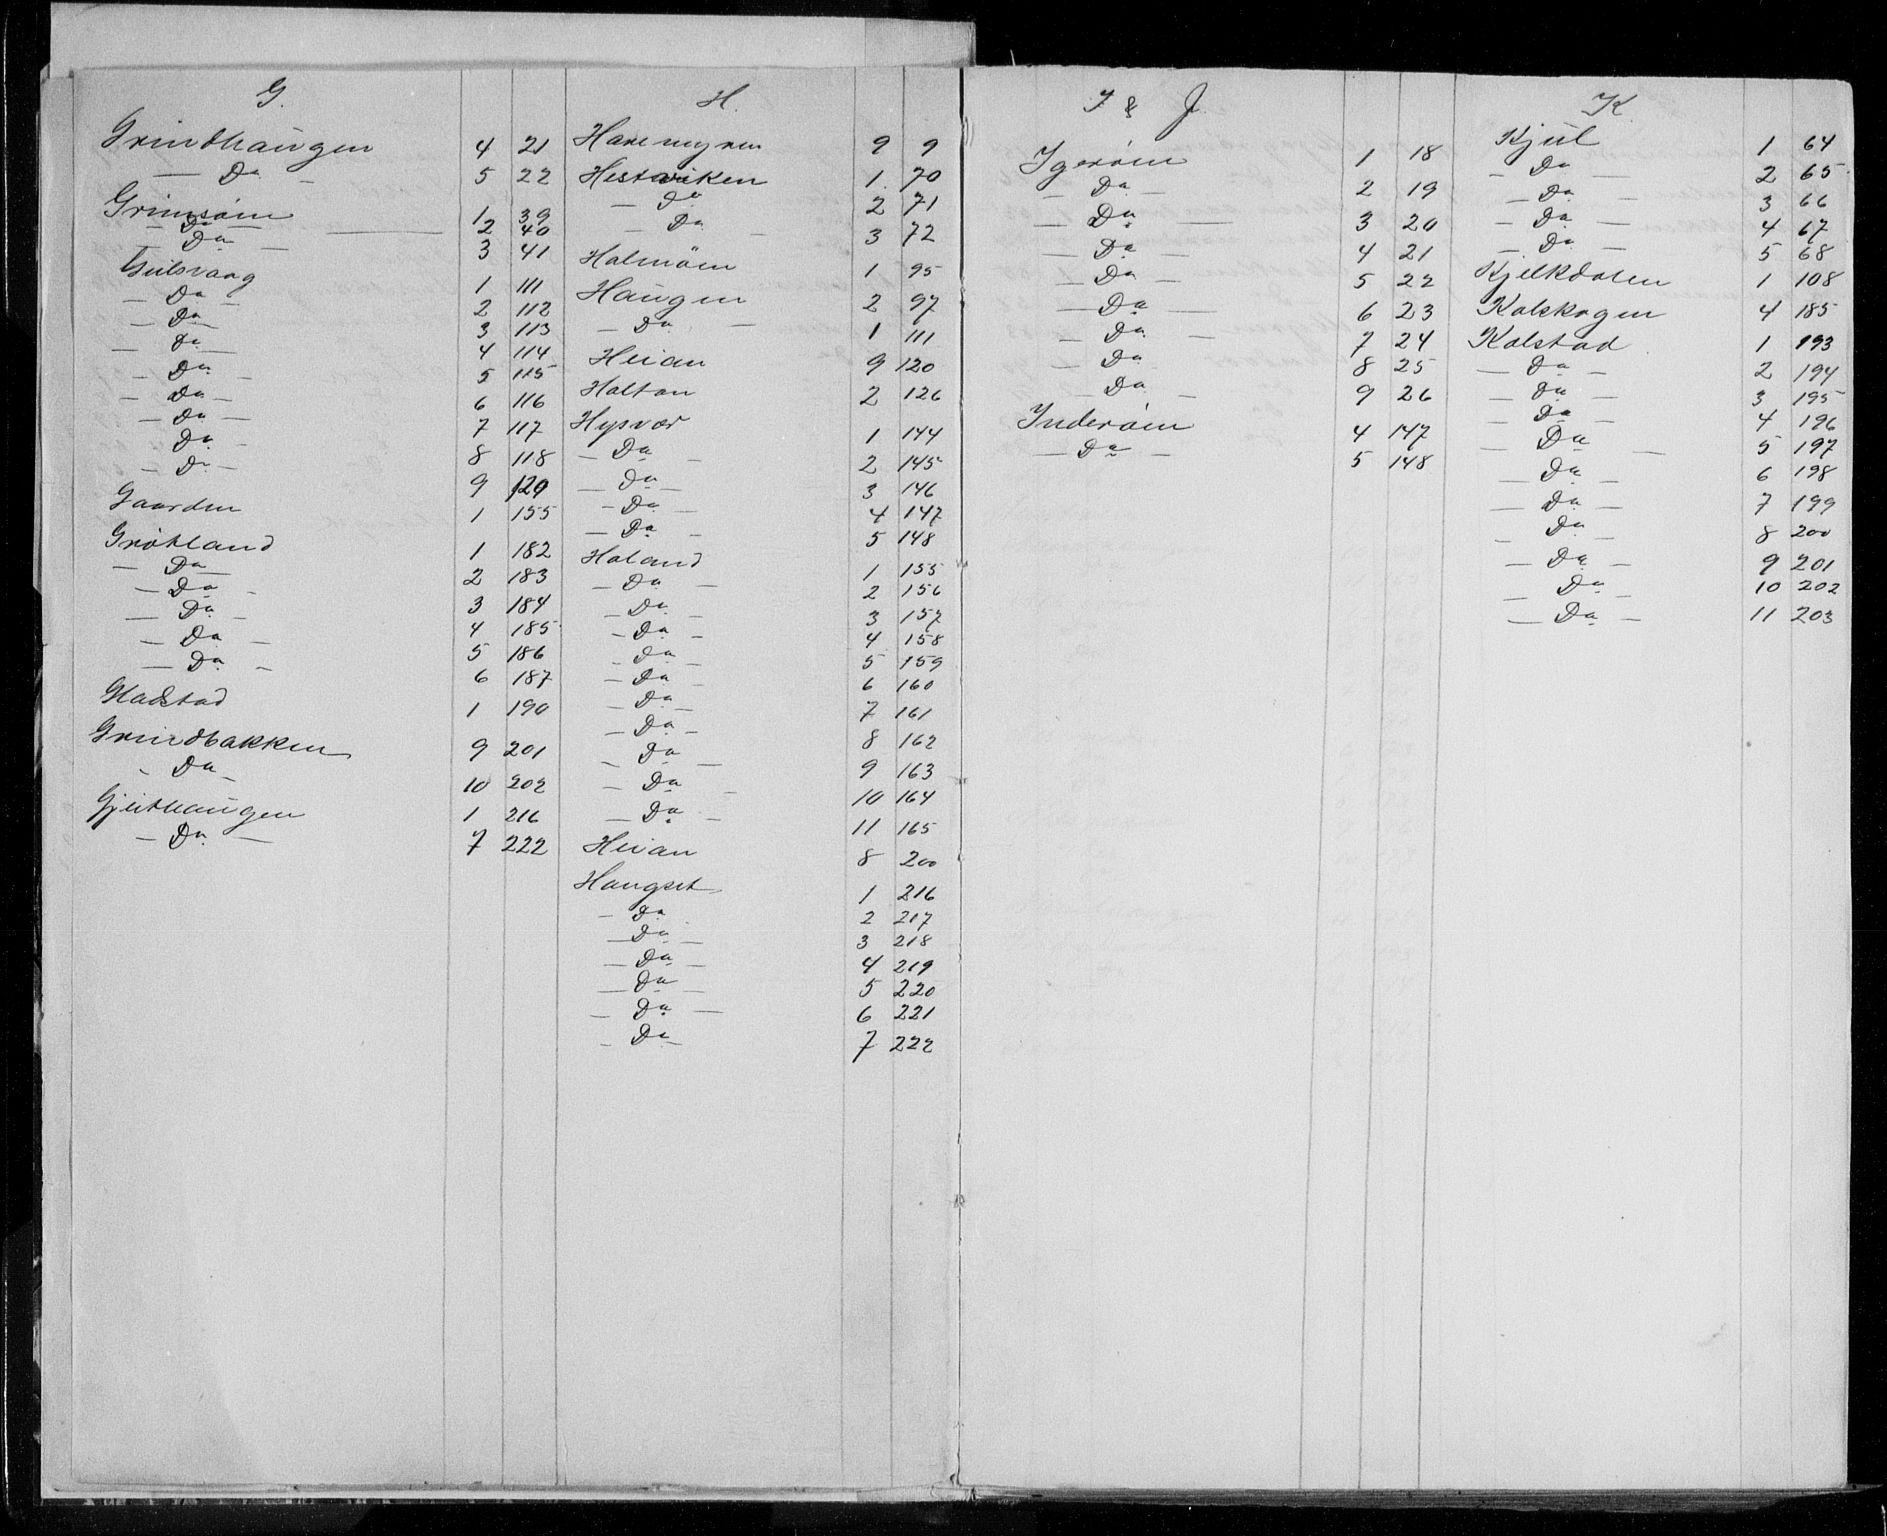 G.
Grindhaugen 4 21
— Do — 5 22
Grimsöm 1 39
— Do — 2 40
— Do — 3 41
Gulsvaag 1 111
— Do — 2 112
— Do — 3 113
— Do — 4 114
— Do — 5 115
— Do — 6 116
— Do — 7 117
— Do — 8 118
— Do — 9 120
Gaarden 1 155
Grötland 1 182
— Do — 2 183
— Do — 3 184
— Do — 4 185
— Do — 5 186
— Do — 6 187
Gladstad 1 190
Grindbakken 9 201
— Do — 10 202
Gjeithaugen 1 216
— Do — 7 222
H.
Haremyren 9 9
Hestviken 1 70
— Do — 2 71
— Do — 3 72
Holmöen 1 95
Haugen 2 97
— Do — 1 111
Heian 9 120
Holtan 2 126
Hysvær 1 144
— Do — 2 145
— Do — 3 146
— Do — 4 147
— Do — 5 148
Holand 1 155
— Do — 2 156
— Do — 3 157
— Do — 4 158
— Do — 5 159
— Do — 6 160
— Do — 7 161
— Do — 8 162
— Do — 9 163
— Do — 10 164
— Do — 11 165
Heian 8 200
Haugset 1 216
— Do 2 217
— Do — 3 218
— Do — 4 219
— Do — 5 220
— Do — 6 221
— Do — 7 222
I & J.
Igeröen 1 18
— Do — 2 19
— Do — 3 20
— Do — 4 21
— Do — 5 22
— Do — 6 23
— Do — 7 24
— Do — 8 25
— Do — 9 26
Inderöen 4 147
— Do — 5 148
K.
Kjul 1 64
— Do — 2 65
— Do — 3 66
— Do — 4 67
— Do — 5 68
Kjelkdalen 1 108
Kalskogen 4 185
Kolstad 1 193
— Do — 2 194
— Do — 3 195
— Do — 4 196
— Do — 5 197
— Do — 6 198
— Do — 7 199
— Do — 8 200
— Do — 9 201
— Do — 10 202
— Do — 11 203